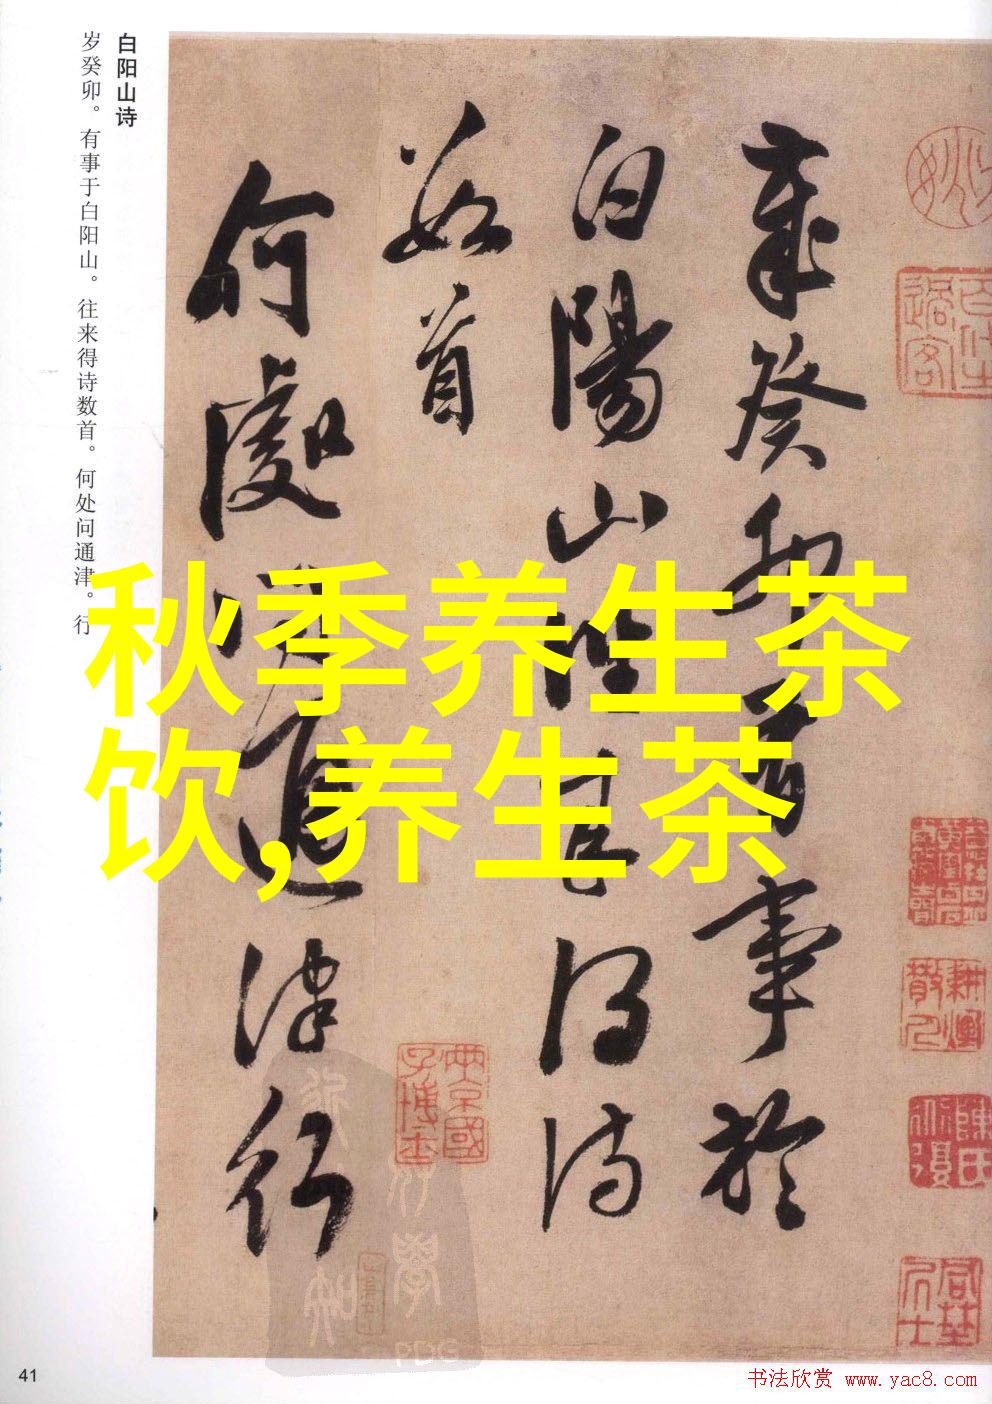 白阳山诗
岁癸卯。有事于白阳山。往来得诗数首。何处问通津。行
岁癸卯有事於
白陽山往来得诗
数首
何處问通津行
秋季养生茶
饮,养生茶
41
书法欣赏 www.yac8.com